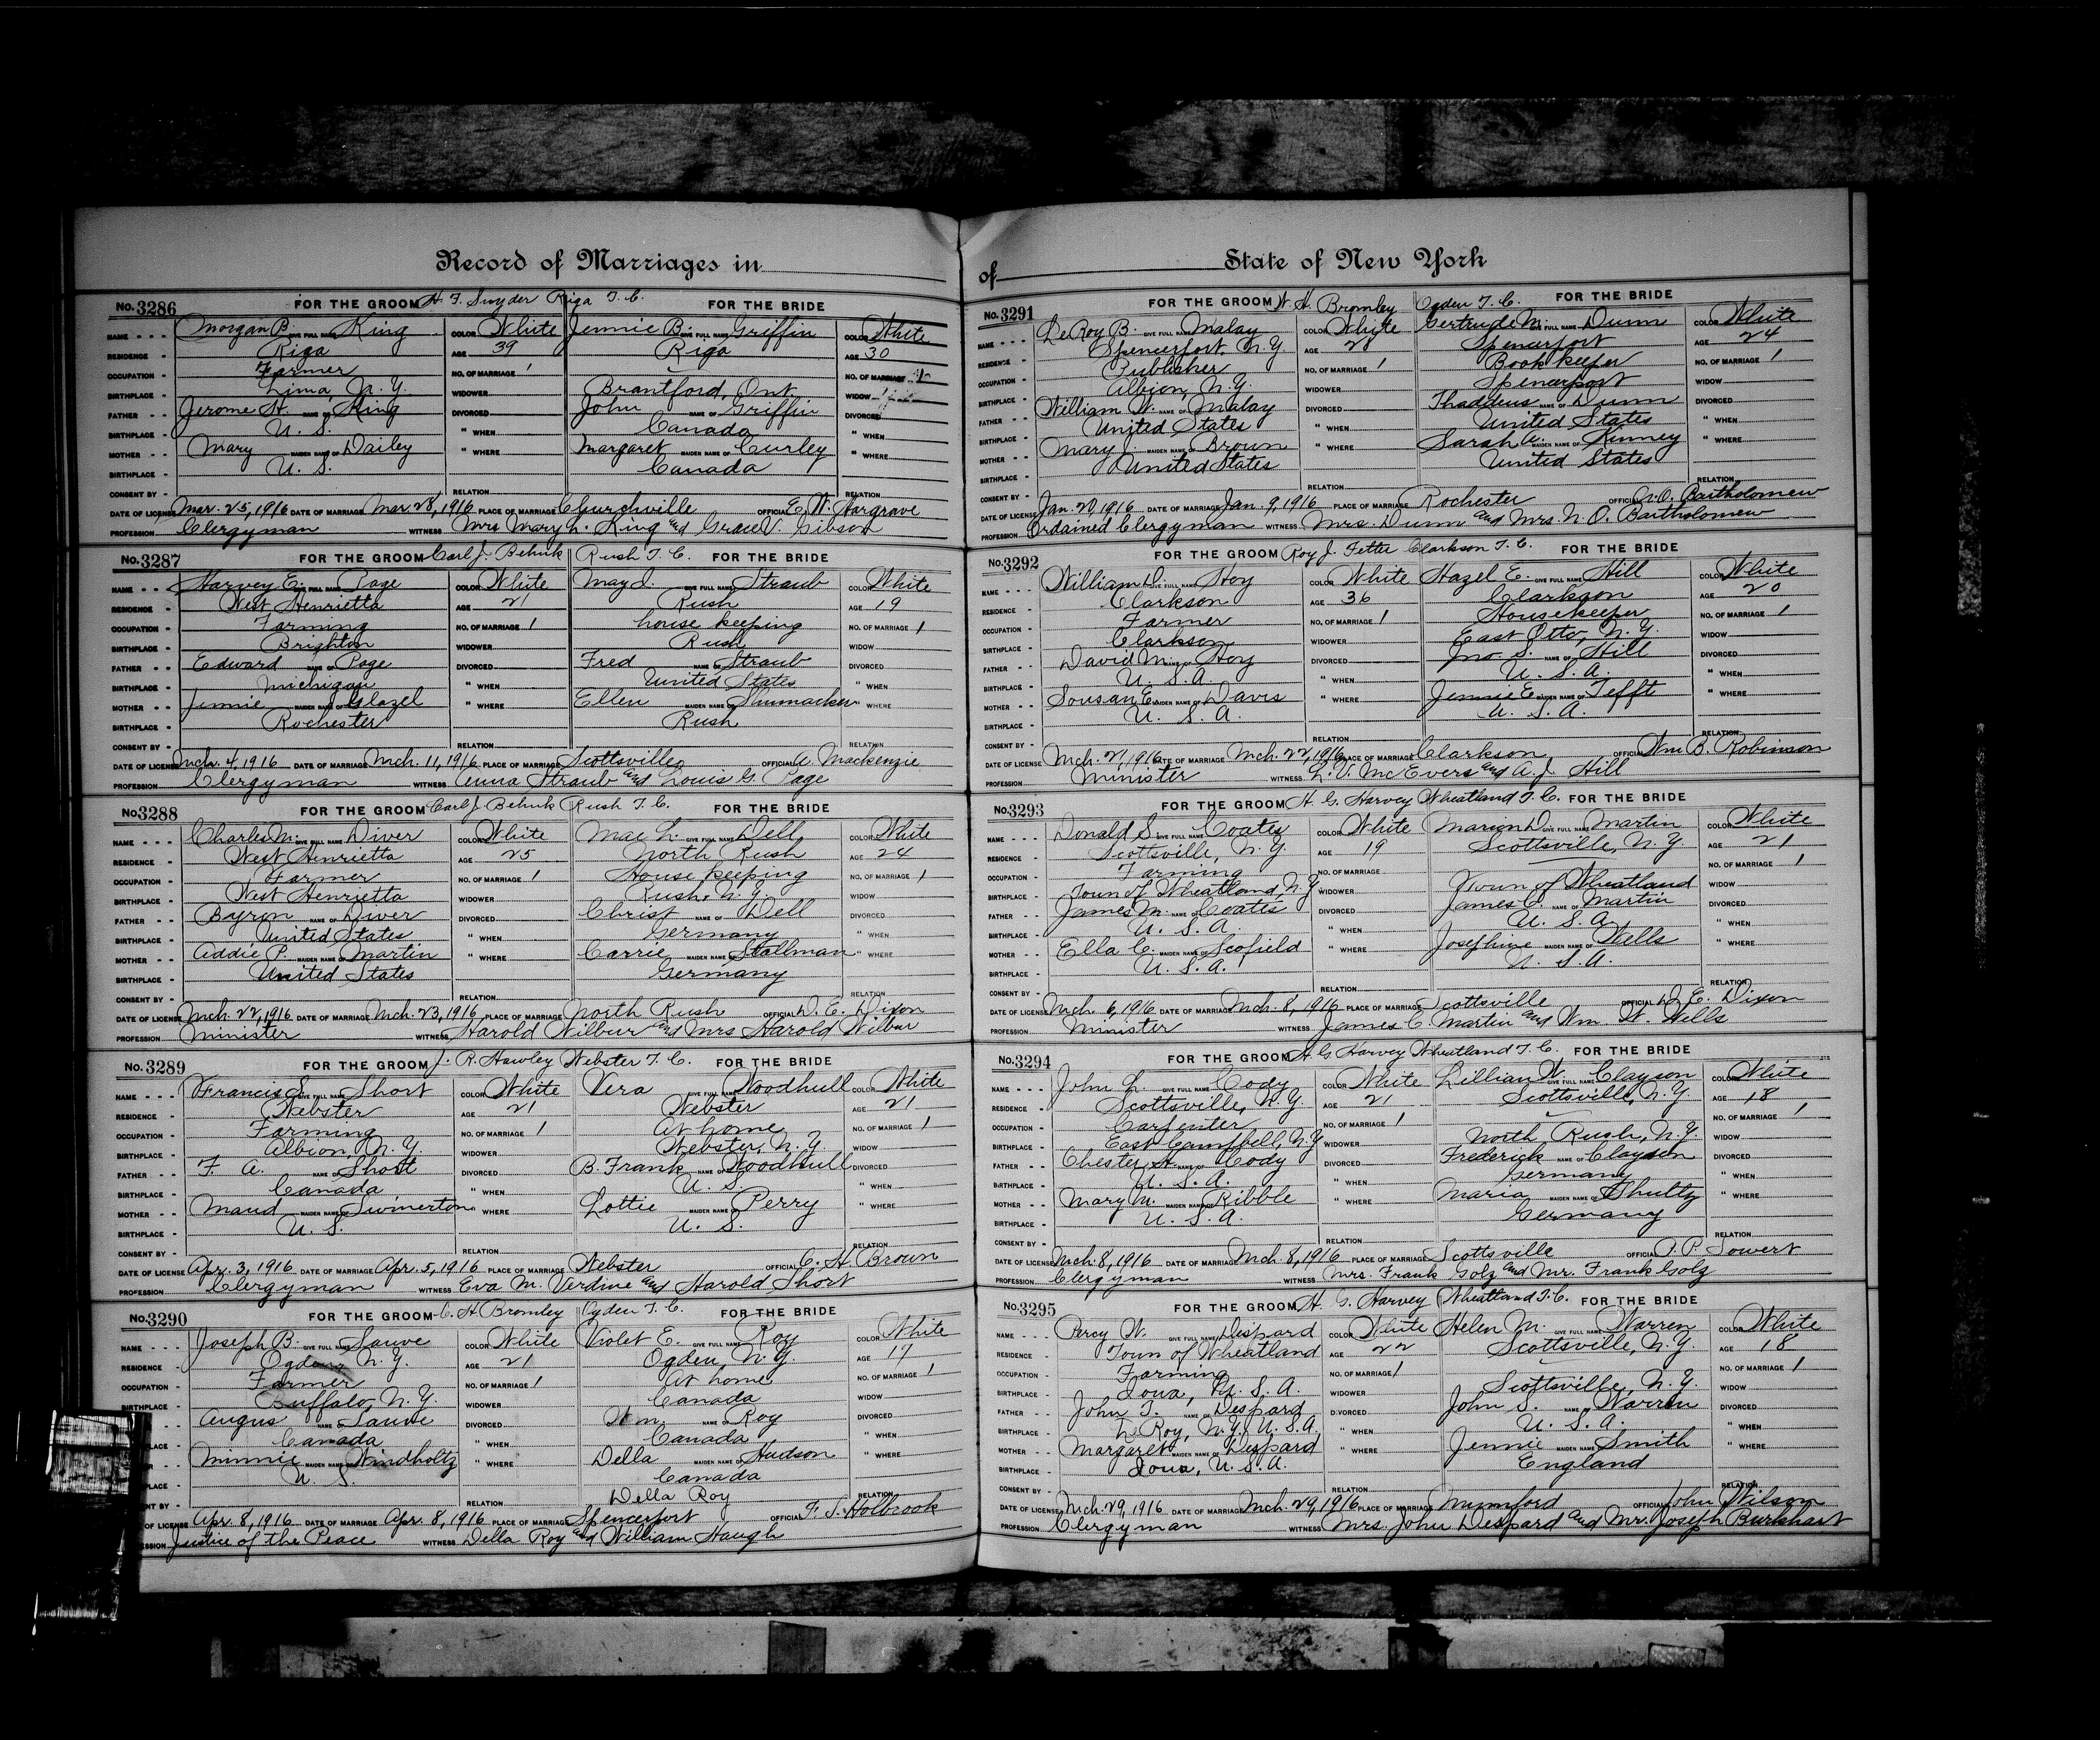 Record of Marriages in
No. 3286 FOR THE GROOM H. F. Snyder Riga T. C. FOR THE BRIDE
NAME Morgan B. GIVE FULL NAME King COLOR White Jennie B. GIVE FULL NAME Griffin COLOR White
RESIDENCE Riga AGE 39 Riga AGE 30
OCCUPATION Farmer NO. OF MARRIAGE 1 NO. OF MARRIAGE
BIRTHPLACE Lima, N. Y. WIDOWER Brantford, Ont. WIDOW
FATHER Jerome H. NAME OF King DIVORCED John NAME OF Griffin DIVORCED
BIRTHPLACE U. S. " WHEN Canada " WHEN
MOTHER Mary MAIDEN NAME OF Dailey " WHERE Margaret MAIDEN NAME OF Curley " WHERE
BIRTHPLACE U. S. Canada
CONSENT BY RELATION RELATION
DATE OF LICENSE Mar. 25, 1916 DATE OF MARRIAGE Mar. 28, 1916 PLACE OF MARRIAGE Churchville OFFICIAL E. W. Hargrave
PROFESSION Clergyman WITNESS Mrs Mary L. King and Grace V. Gibson
No. 3287 FOR THE GROOM Carl J. Behnk Rush T. C. FOR THE BRIDE
NAME Harvey E. GIVE FULL NAME Page COLOR White May I. GIVE FULL NAME Straub COLOR White
RESIDENCE West Henrietta AGE 21 Rush AGE 19
OCCUPATION Farming NO. OF MARRIAGE 1 house keeping NO. OF MARRIAGE 1
BIRTHPLACE Brighton WIDOWER Rush WIDOW
FATHER Edward NAME OF Page DIVORCED Fred NAME OF Straub DIVORCED
BIRTHPLACE Michigan " WHEN United States " WHEN
MOTHER Jennie MAIDEN NAME OF Glazel " WHERE Ellen MAIDEN NAME OF " WHERE
BIRTHPLACE Rochester Rush
CONSENT BY RELATION RELATION
DATE OF LICENSE Mch. 4, 1916 DATE OF MARRIAGE Mch. 11, 1916 PLACE OF MARRIAGE Scottsville OFFICIAL A. Mackenzie
PROFESSION Clergyman WITNESS Anna Straub and Louis G. Page
No. 3288 FOR THE GROOM Carl J. Behnk Rush T. C. FOR THE BRIDE
NAME Charles M. GIVE FULL NAME Diver COLOR White Mae L. GIVE FULL NAME Dell COLOR White
RESIDENCE West Henrietta AGE 25 North Rush AGE 24
OCCUPATION Farmer NO. OF MARRIAGE 1 House keeping NO. OF MARRIAGE 1
BIRTHPLACE West Henrietta WIDOWER Rush, N. Y. WIDOW
FATHER Byron NAME OF Diver DIVORCED Christ NAME OF Dell DIVORCED
BIRTHPLACE United States " WHEN Germany " WHEN
MOTHER Addie P. MAIDEN NAME OF Martin " WHERE Carrie MAIDEN NAME OF Stallman " WHERE
BIRTHPLACE United States Germany
CONSENT BY RELATION RELATION
DATE OF LICENSE Mch. 22, 1916 DATE OF MARRIAGE Mch. 23, 1916 PLACE OF MARRIAGE North Rush OFFICIAL D. E. Dixon
PROFESSION Minister WITNESS Harold Wilbur and Mrs Harold Wilbur
No. 3289 FOR THE GROOM J. R. Hawley Webster T. C. FOR THE BRIDE
NAME Francis S. GIVE FULL NAME Short COLOR White Vera GIVE FULL NAME Woodhull COLOR White
RESIDENCE Webster AGE 21 Webster AGE 21
OCCUPATION Farming NO. OF MARRIAGE 1 At home NO. OF MARRIAGE 1
BIRTHPLACE Albion, N. Y. WIDOWER Webster, N. Y. WIDOW
FATHER F. A. NAME OF Short DIVORCED B. Frank NAME OF Woodhull DIVORCED
BIRTHPLACE Canada " WHEN U. S. " WHEN
MOTHER Maud MAIDEN NAME OF Swinerton " WHERE Lottie MAIDEN NAME OF Perry " WHERE
BIRTHPLACE U. S. U. S.
CONSENT BY RELATION RELATION
DATE OF LICENSE Apr. 3, 1916 DATE OF MARRIAGE Apr. 5, 1916 PLACE OF MARRIAGE Webster OFFICIAL C. H. Brown
PROFESSION Clergyman WITNESS Eva M. Verdine and Harold Short
No. 3290 FOR THE GROOM C. H. Bromley Ogden T. C. FOR THE BRIDE
NAME Joseph B. GIVE FULL NAME Sauve COLOR White Violet E. GIVE FULL NAME Roy COLOR White
RESIDENCE Ogden, N. Y. AGE 21 Ogden, N. Y. AGE 17
OCCUPATION Farmer NO. OF MARRIAGE 1 At home NO. OF MARRIAGE 1
BIRTHPLACE Buffalo, N. Y. WIDOWER Canada WIDOW
Angus NAME OF Sauve DIVORCED Wm. NAME OF Roy DIVORCED
PLACE Canada " WHEN Canada " WHEN
Minnie MAIDEN NAME OF Windholtz " WHERE Della MAIDEN NAME OF Hudson " WHERE
PLACE U. S. Canada
NT BY RELATION Della Roy RELATION
OF LICENSE Apr. 8, 1916 DATE OF MARRIAGE Apr. 8, 1916 PLACE OF MARRIAGE Spencerport OFFICIAL F. J. Holbrook
SSION Justice of the Peace WITNESS Della Roy and William Haugh
of State of New York
No. 3291 FOR THE GROOM W. H. Bromley Ogden T. C. FOR THE BRIDE
NAME LeRoy B. GIVE FULL NAME Malay COLOR White Gertrude M. GIVE FULL NAME Dunn COLOR White
RESIDENCE Spencerport, N. Y. AGE 28 Spencerport AGE 24
OCCUPATION Publisher NO. OF MARRIAGE 1 Book keeper NO. OF MARRIAGE 1
BIRTHPLACE Albion, N. Y. WIDOWER Spencerport WIDOW
FATHER William W. NAME OF Malay DIVORCED Thaddeus NAME OF Dunn DIVORCED
BIRTHPLACE United States " WHEN United States " WHEN
MOTHER Mary J. MAIDEN NAME OF Brown " WHERE Sarah A. MAIDEN NAME OF Kinney " WHERE
BIRTHPLACE United States United States
CONSENT BY RELATION RELATION
DATE OF LICENSE Jan. 1916 DATE OF MARRIAGE Jan. 9, 1916 PLACE OF MARRIAGE Rochester OFFICIAL N. O. Bartholomew
PROFESSION Ordained Clergyman WITNESS Mrs. Dunn and Mrs. N. O. Bartholomew
No. 3292 FOR THE GROOM Roy J. Fetter Clarkson T. C. FOR THE BRIDE
NAME William D. GIVE FULL NAME Hoy COLOR White Hazel E. GIVE FULL NAME Hill COLOR White
RESIDENCE Clarkson AGE 36 Clarkson AGE 20
OCCUPATION Farmer NO. OF MARRIAGE 1 Housekeeper NO. OF MARRIAGE 1
BIRTHPLACE Clarkson WIDOWER East Otto, N. Y. WIDOW
FATHER David M. NAME OF Hoy DIVORCED Jno. S. NAME OF Hill DIVORCED
BIRTHPLACE U. S. A. " WHEN U. S. A. " WHEN
MOTHER Sousan E. MAIDEN NAME OF Davis " WHERE Jennie E. MAIDEN NAME OF Tefft " WHERE
BIRTHPLACE U. S. A. U. S. A.
CONSENT BY RELATION RELATION
DATE OF LICENSE Mch. 21, 1916 DATE OF MARRIAGE Mch. 22, 1916 PLACE OF MARRIAGE Clarkson OFFICIAL Wm. B. Robinson
PROFESSION Minister WITNESS L. V. McEvers and A. J. Hill
No. 3293 FOR THE GROOM H. G. Harvey Wheatland T. C. FOR THE BRIDE
NAME Donald S. GIVE FULL NAME Coates COLOR White Marion D. GIVE FULL NAME Martin COLOR White
RESIDENCE Scottsville, N. Y. AGE 19 Scottsville, N. Y. AGE 21
OCCUPATION Farming NO. OF MARRIAGE NO. OF MARRIAGE 1
BIRTHPLACE Town of Wheatland, N. Y. WIDOWER Town of Wheatland WIDOW
FATHER James M. NAME OF Coates DIVORCED James C. NAME OF Martin DIVORCED
BIRTHPLACE U. S. A. " WHEN U. S. A. " WHEN
MOTHER Ella C. MAIDEN NAME OF Scofield " WHERE Josephine MAIDEN NAME OF Wells " WHERE
BIRTHPLACE U. S. A. U. S. A.
CONSENT BY RELATION RELATION
DATE OF LICENSE Mch. 6, 1916 DATE OF MARRIAGE Mch. 8, 1916 PLACE OF MARRIAGE Scottsville OFFICIAL D. E. Dixon
PROFESSION Minister WITNESS James C. Martin and Wm. W. Wells
No. 3294 FOR THE GROOM H. G. Harvey Wheatland T. C. FOR THE BRIDE
NAME John L. GIVE FULL NAME Cody COLOR White Lillian W. GIVE FULL NAME Clayson COLOR White
RESIDENCE Scottsville, N. Y. AGE 21 Scottsville, N. Y. AGE 18
OCCUPATION Carpenter NO. OF MARRIAGE 1 NO. OF MARRIAGE 1
BIRTHPLACE East Campbell, N. Y. WIDOWER North Rush, N. Y. WIDOW
FATHER Chester A. NAME OF Cody DIVORCED Frederick NAME OF Clayson DIVORCED
BIRTHPLACE U. S. A. " WHEN Germany " WHEN
MOTHER Mary M. MAIDEN NAME OF Ribble " WHERE Maria MAIDEN NAME OF Shultz " WHERE
BIRTHPLACE U. S. A. Germany
CONSENT BY RELATION RELATION
DATE OF LICENSE Mch. 8, 1916 DATE OF MARRIAGE Mch. 8, 1916 PLACE OF MARRIAGE Scottsville OFFICIAL A. P. Sowert
PROFESSION Clergyman WITNESS Mrs. Frank Golz and Mr. Frank Golz
No. 3295 FOR THE GROOM H. G. Harvey Wheatland T. C. FOR THE BRIDE
NAME Percy W. GIVE FULL NAME Despard COLOR White Helen M. GIVE FULL NAME Warren COLOR White
RESIDENCE Town of Wheatland AGE 22 Scottsville, N. Y. AGE 18
OCCUPATION Farming NO. OF MARRIAGE 1 NO. OF MARRIAGE 1
BIRTHPLACE Iowa, U. S. A. WIDOWER Scottsville, N. Y. WIDOW
FATHER John T. NAME OF Despard DIVORCED John S. NAME OF Warren DIVORCED
BIRTHPLACE LeRoy, N. Y. U. S. A. " WHEN U. S. A. " WHEN
MOTHER Margaret MAIDEN NAME OF Despard " WHERE Jennie MAIDEN NAME OF Smith " WHERE
BIRTHPLACE Iowa, U. S. A. England
CONSENT BY RELATION RELATION
DATE OF LICENSE Mch. 29, 1916 DATE OF MARRIAGE Mch. 29, 1916 PLACE OF MARRIAGE Mumford OFFICIAL John Wilson
PROFESSION Clergyman WITNESS Mrs. John Despard and Mr. Joseph Burkhart